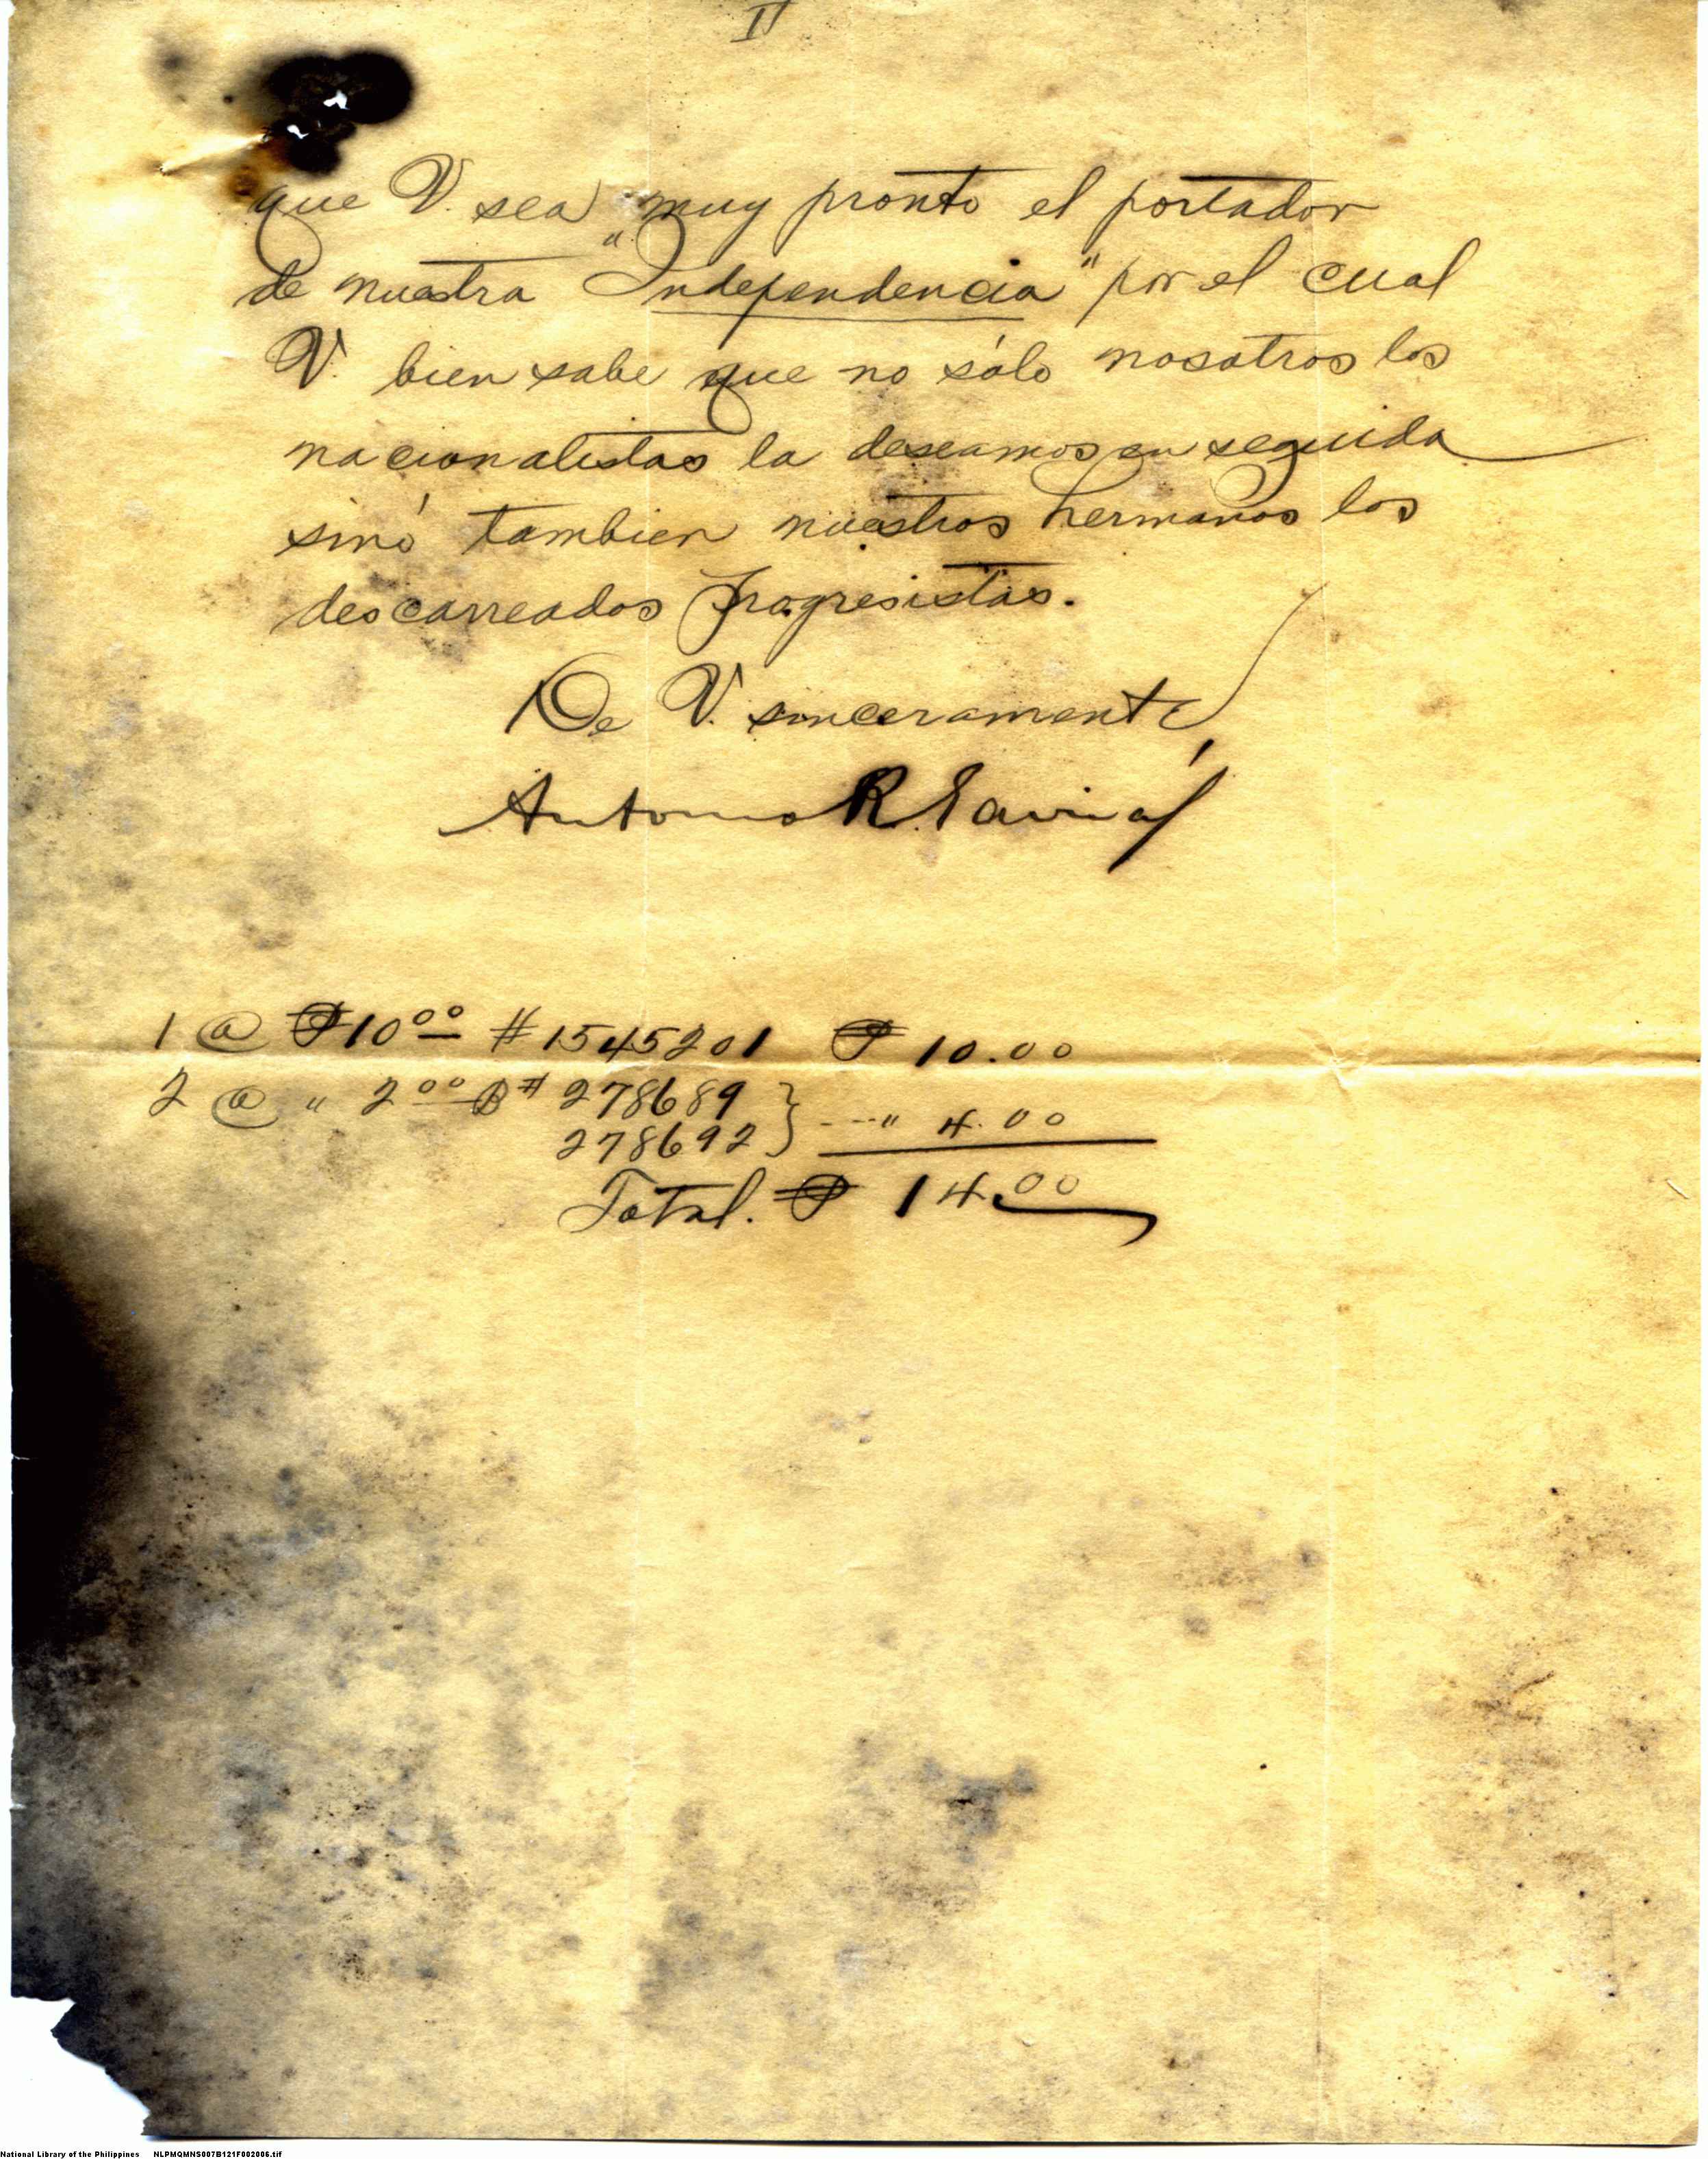 II
que V. sea muy pronto el portador
de nuestra "Independencia" por el cual
V. bien sabe que no sólo nosotros los
nacionalistas la deseamos en seguida
sinó tambien nuestros hermanos los
descarreados progresistas.
De V. sinceramente,
Antonio R.
1 @ ₱10⁰⁰ #1545201 ₱ 10.00
2 @ " 2⁰⁰ B# 278689 } ---" 4.00
278692
Total. ₱ 14.⁰⁰
National Library of the Philippines NLPMQMNS007B121F002006.tif